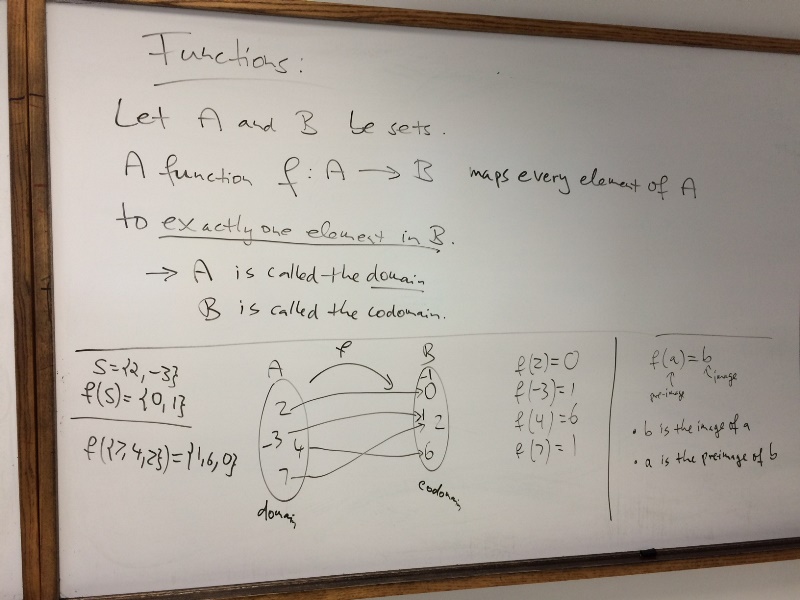 Functions:
Let A and B be sets.
A function f: A → B maps every element of A
to exactly one element in B.
→ A is called the domain
B is called the codomain.
S={2,-3}
f(S)={0,1}
f({7,4,2})={1,6,0}
A
f
B
2
-3
4
7
domain
-1
0
1
2
6
codomain
f(2)=0
f(-3)=1
f(4)=6
f(7)=1
f(a)=b
↑ ↖image
pre-image
• b is the image of a
• a is the preimage of b